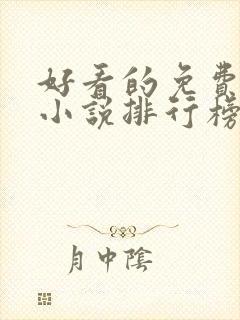 好看的免費
小說排行榜
月中陰